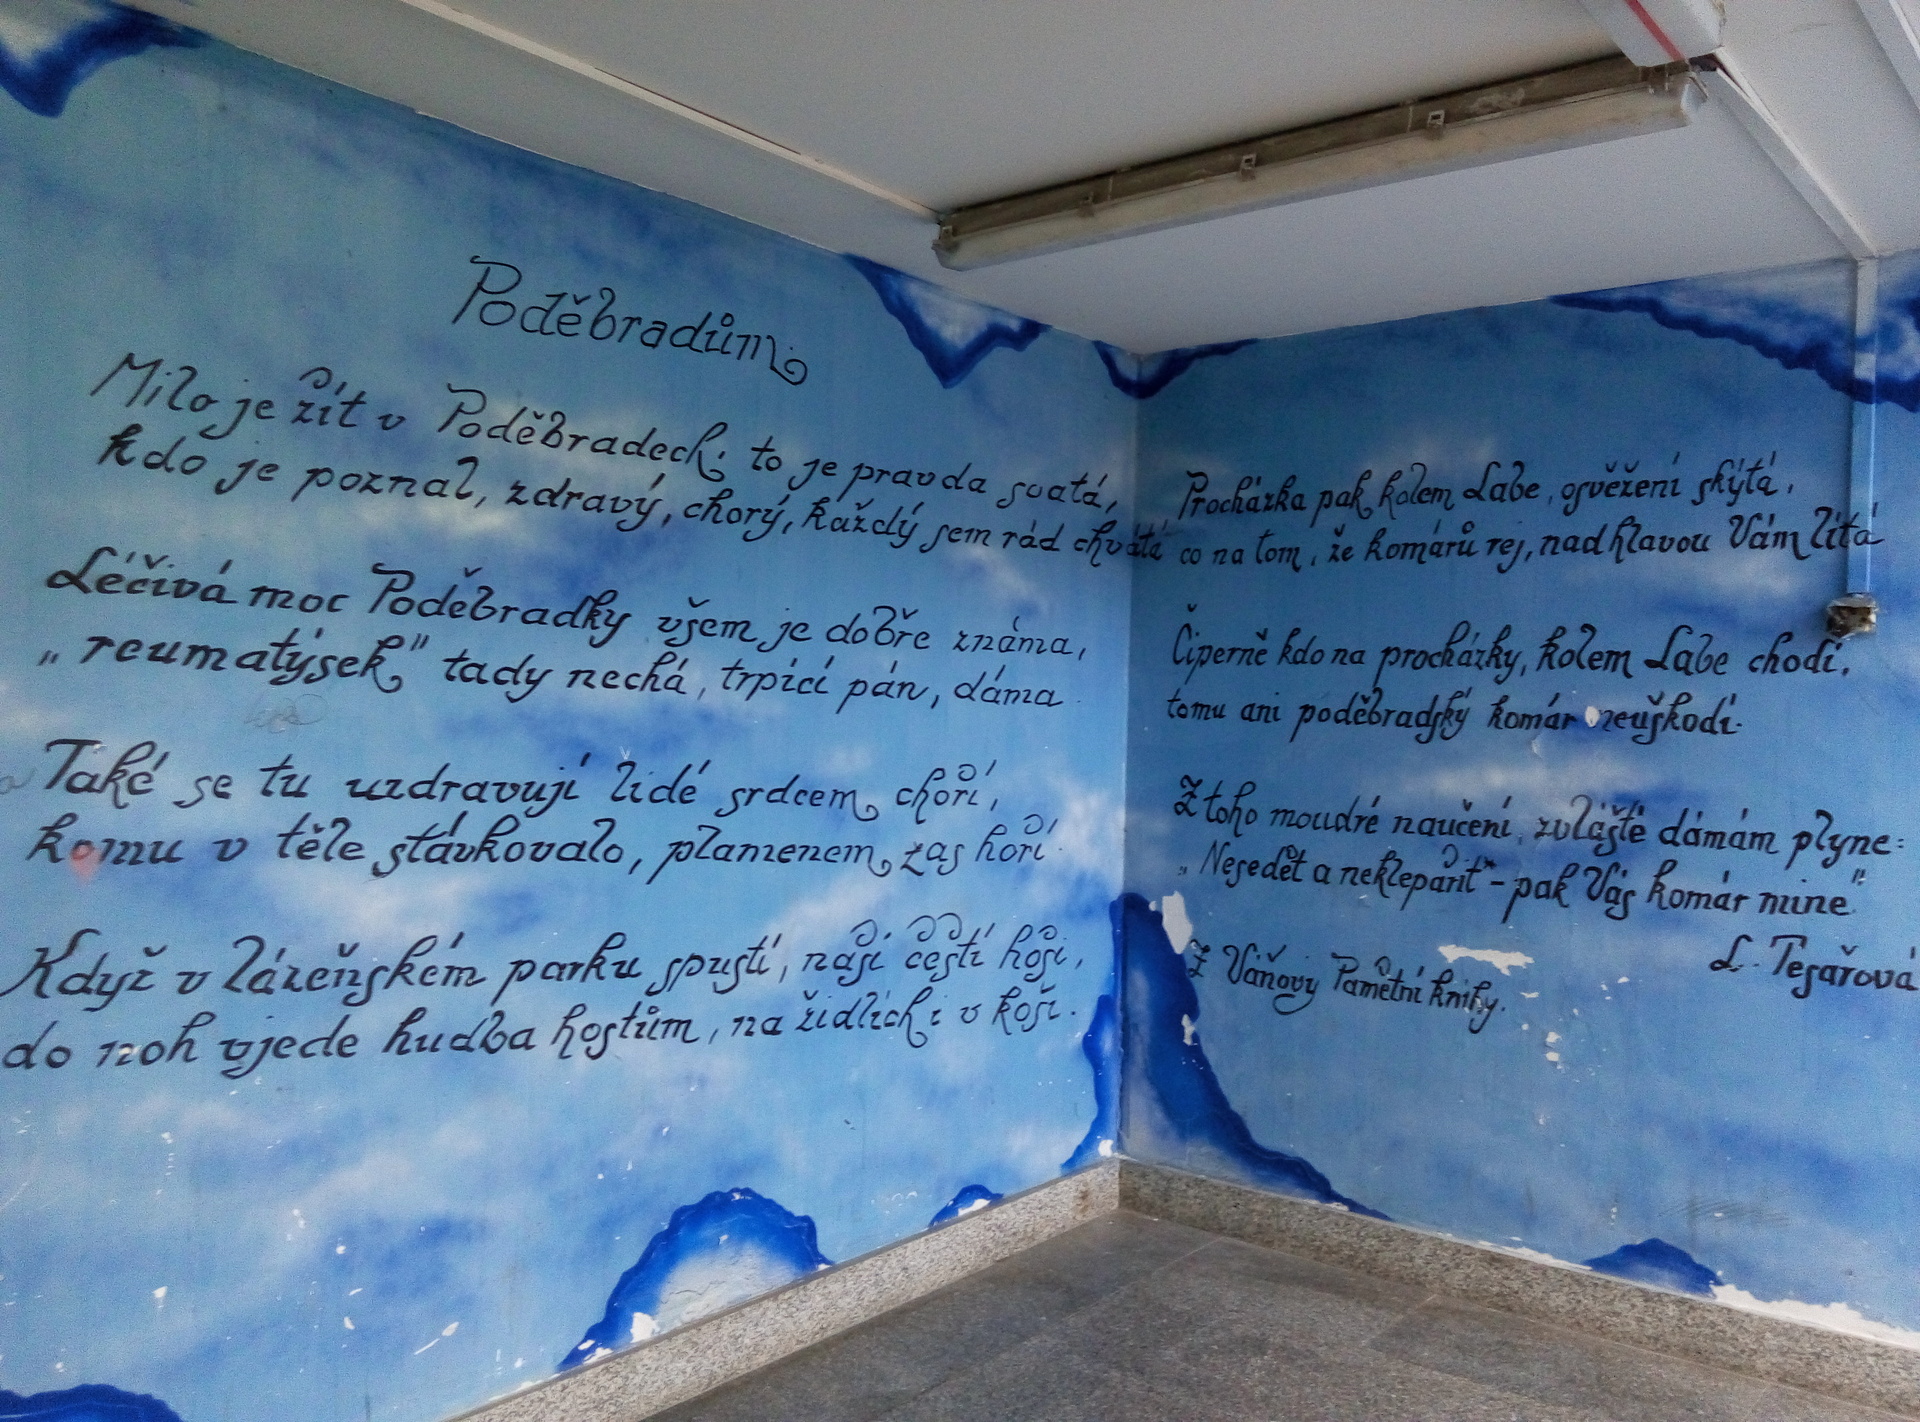 Poděbradům
Milo je žít v Poděbradech; to je pravda svatá,
kdo je poznal, zdravý, chorý, každý sem rád chvátá
Léčivá moc Poděbradky všem je dobře známa,
„reumatýsek" tady nechá, trpící pán, dáma.
Také se tu uzdravují lidé srdcem choří,
komu v těle stávkovalo, plamenem zas hoří.
Když v lázeňském parku spustí, naši čeští hoši,
do noh vjede hudba hostům, na židlích i v koši.
Procházka pak kolem Labe, osvěžení skýtá,
co na tom, že komárů rej, nad hlavou Vám lítá
Čiperně kdo na procházky, kolem Labe chodí,
tomu ani poděbradský komár neuškodí.
Z toho moudré naučení, zvláště dámám plyne:
„Nesedět a neklepařit" - pak Vás komár mine".
L. Tesařová
Z Váňovy Pamětní knihy.